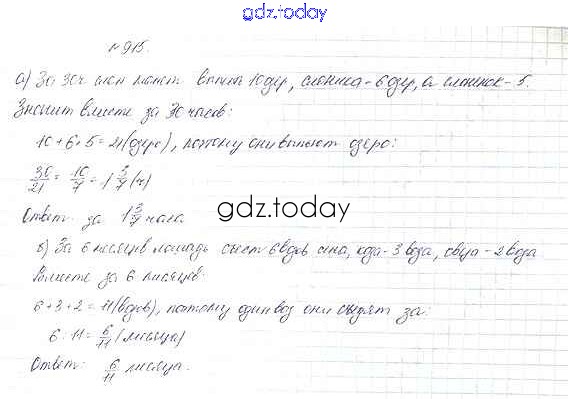 gdz.today
№915.
а) За 30ч слон может выпить 10 озёр, слониха - 6 озёр, а слоненок - 5.
Значит вместе за 30 часов:
10 + 6 + 5 = 21 (озеро), поэтому они выпьют озеро:
30/21 = 10/7 = 1 3/7 (ч)
Ответ: за 1 3/7 часа
gdz.today
б) За 6 месяцев лошадь съест 6 возов сена, коза - 3 воза, овца - 2 воза
Вместе за 6 месяцев:
6 + 3 + 2 = 11 (возов), поэтому один воз они съедят за:
6 : 11 = 6/11 (месяца)
Ответ: 6/11 месяца.